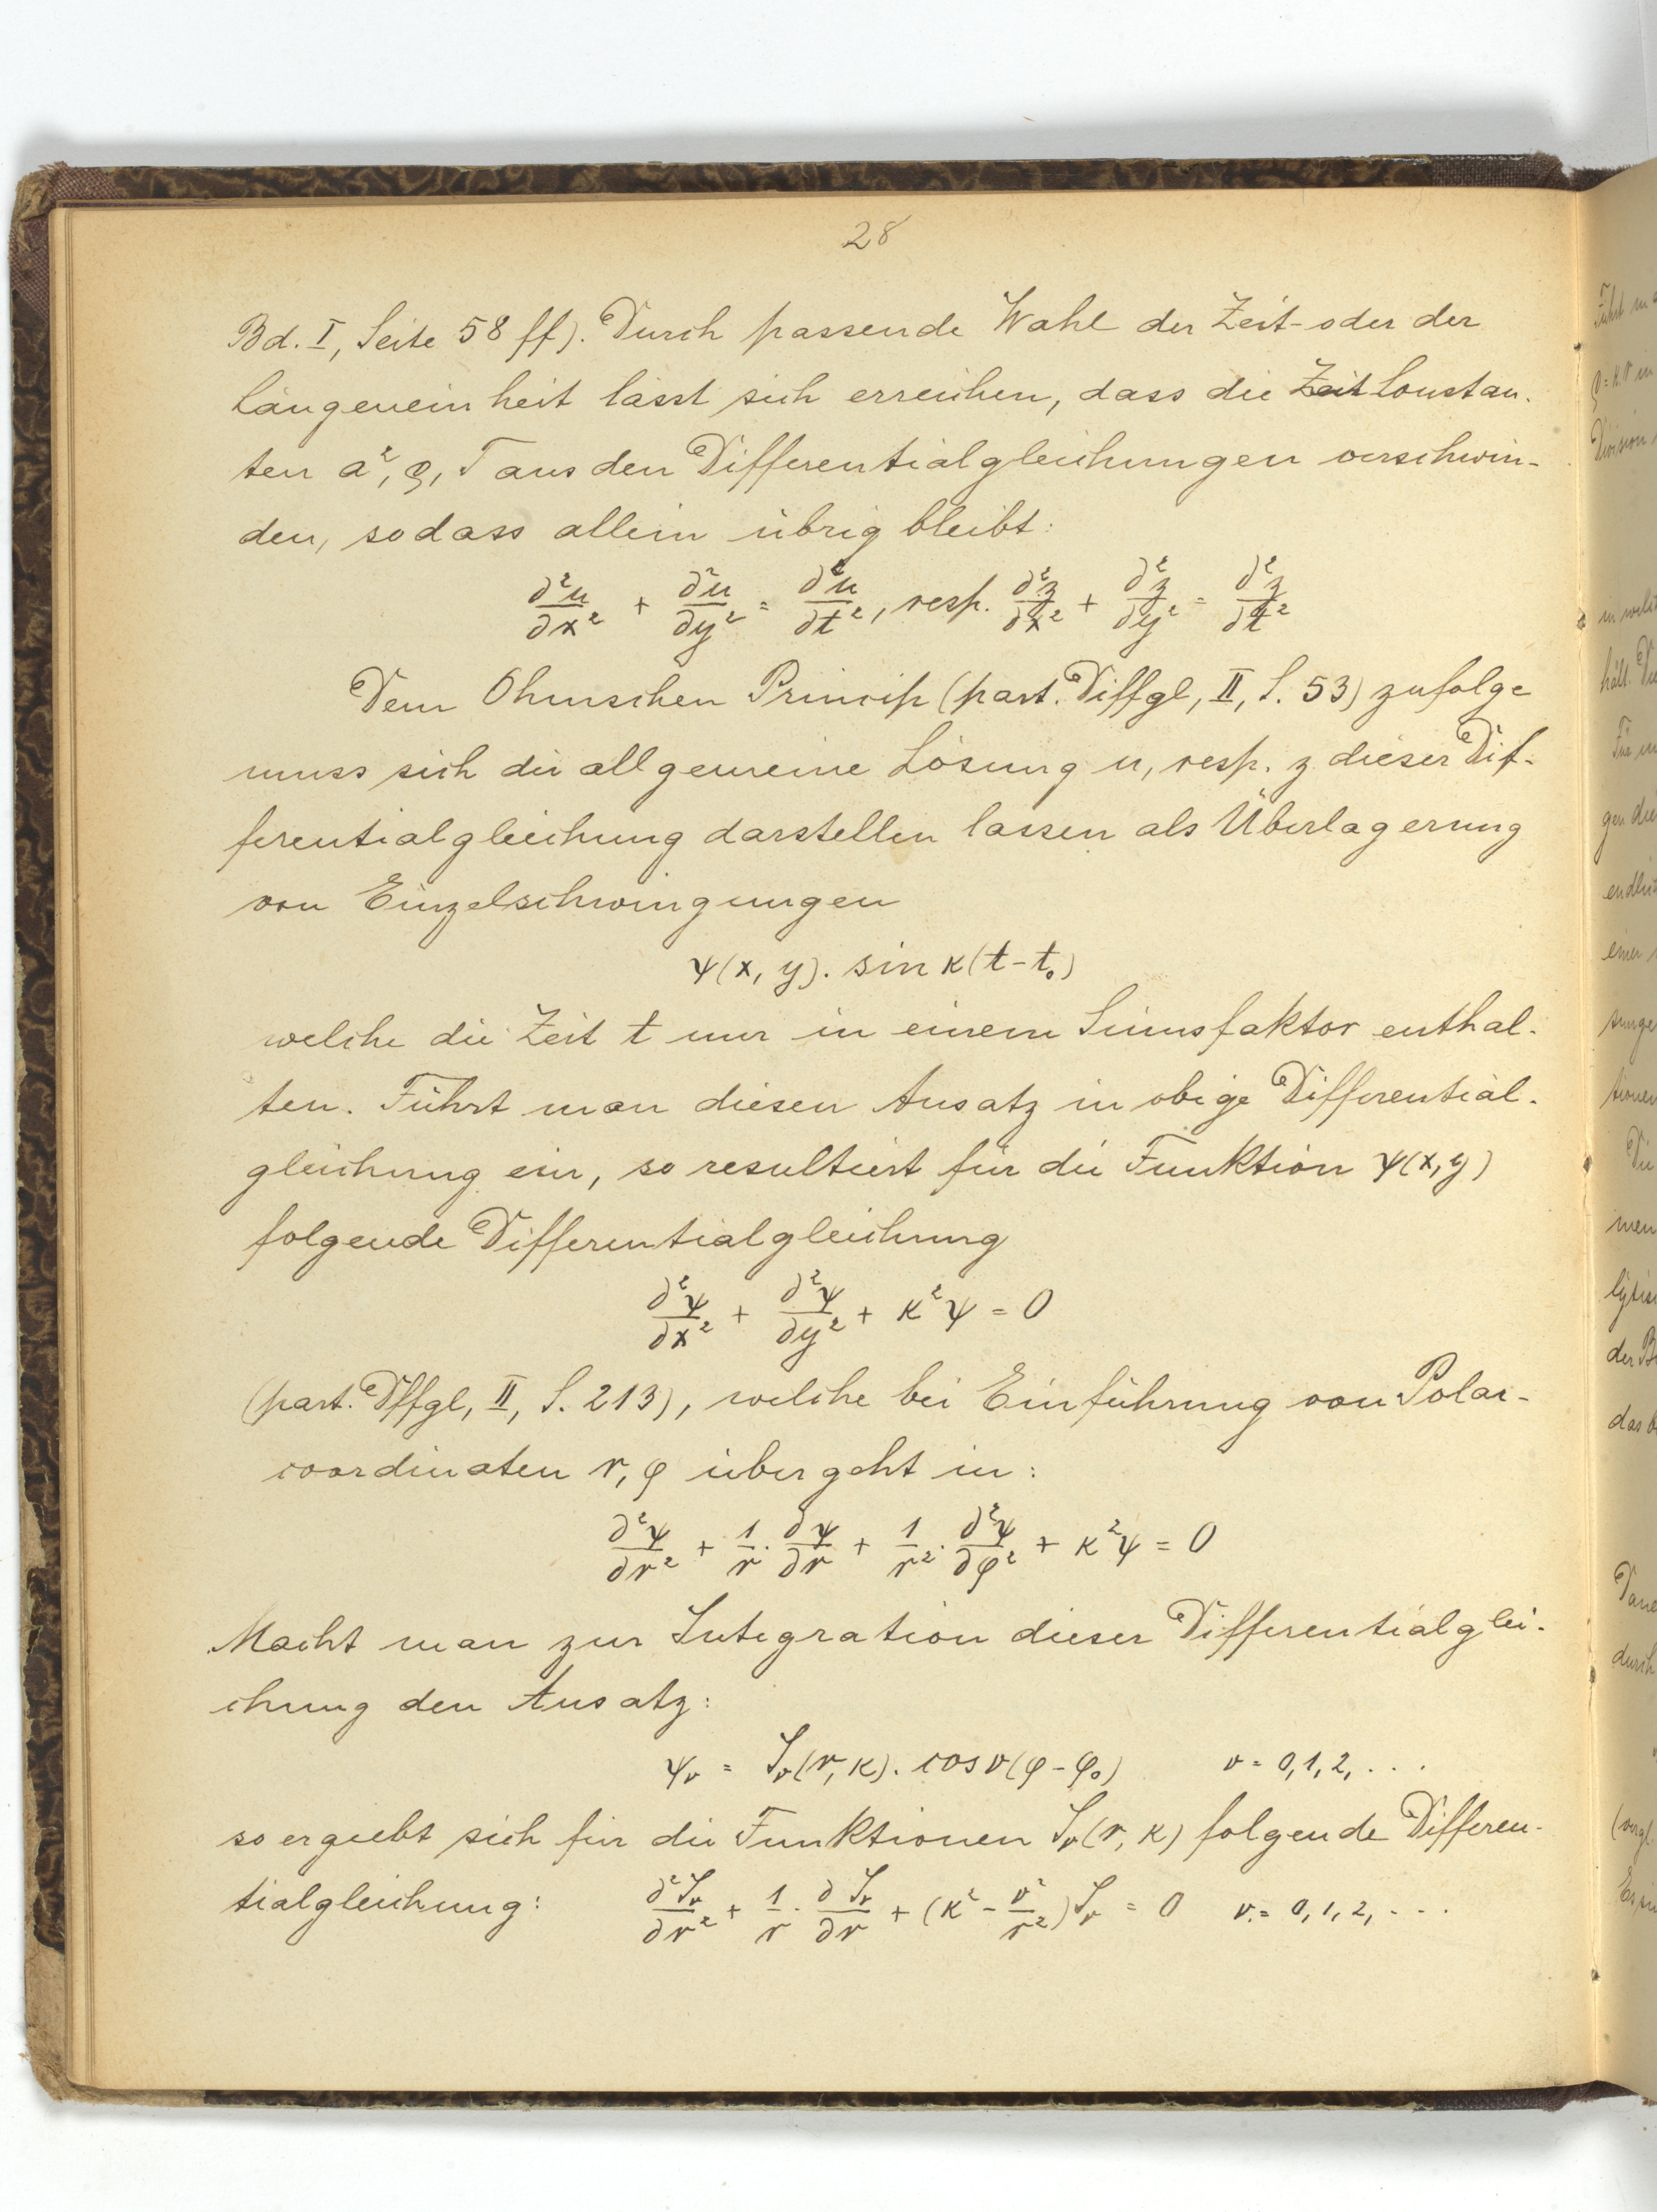 28
Bd. I, Seite 58 ff). Durch passende Wahl der Zeit- oder der
Längeneinheit lässt sich erreichen, dass die Zeit Constan-
ten a², ρ, T aus den Differentialgleichungen verschwin-
den, sodass allein übrig bleibt:
∂²u/∂x² + ∂²u/∂y² = ∂²u/∂t², resp. ∂²z/∂x² + ∂²z/∂y² = ∂²z/∂t²
Dem Ohmschen Princip (part. Diffgl, II, S. 53) zufolge
muss sich die allgemeine Lösung u, resp. z dieser Dif-
ferentialgleichung darstellen lassen als Überlagerung
von Einzelschwingungen
ψ(x, y). sin κ(t-t₀)
welche die Zeit t nur in einem Sinusfaktor enthal-
ten. Führt man diesen Ansatz in obige Differential-
gleichung ein, so resultiert für die Funktion ψ(x,y)
folgende Differentialgleichung
∂²ψ/∂x² + ∂²ψ/∂y² + κ²ψ = 0
(part. Dffgl, II, S. 213), welche bei Einführung von Polar-
coordinaten r, φ übergeht in:
∂²ψ/∂r² + 1/r · ∂ψ/∂r + 1/r² · ∂²ψ/∂φ² + κ²ψ = 0
Macht man zur Integration dieser Differentialglei-
chung den Ansatz:
ψᵥ = Jᵥ(r, κ). cos ν(φ-φ₀) ν = 0,1,2, . . .
so ergiebt sich für die Funktionen Jᵥ(r, κ) folgende Differen-
tialgleichung: ∂²Jᵥ/∂r² + 1/r · ∂Jᵥ/∂r + (κ² - ν²/r²)Jᵥ = 0 ν = 0,1,2, . . .